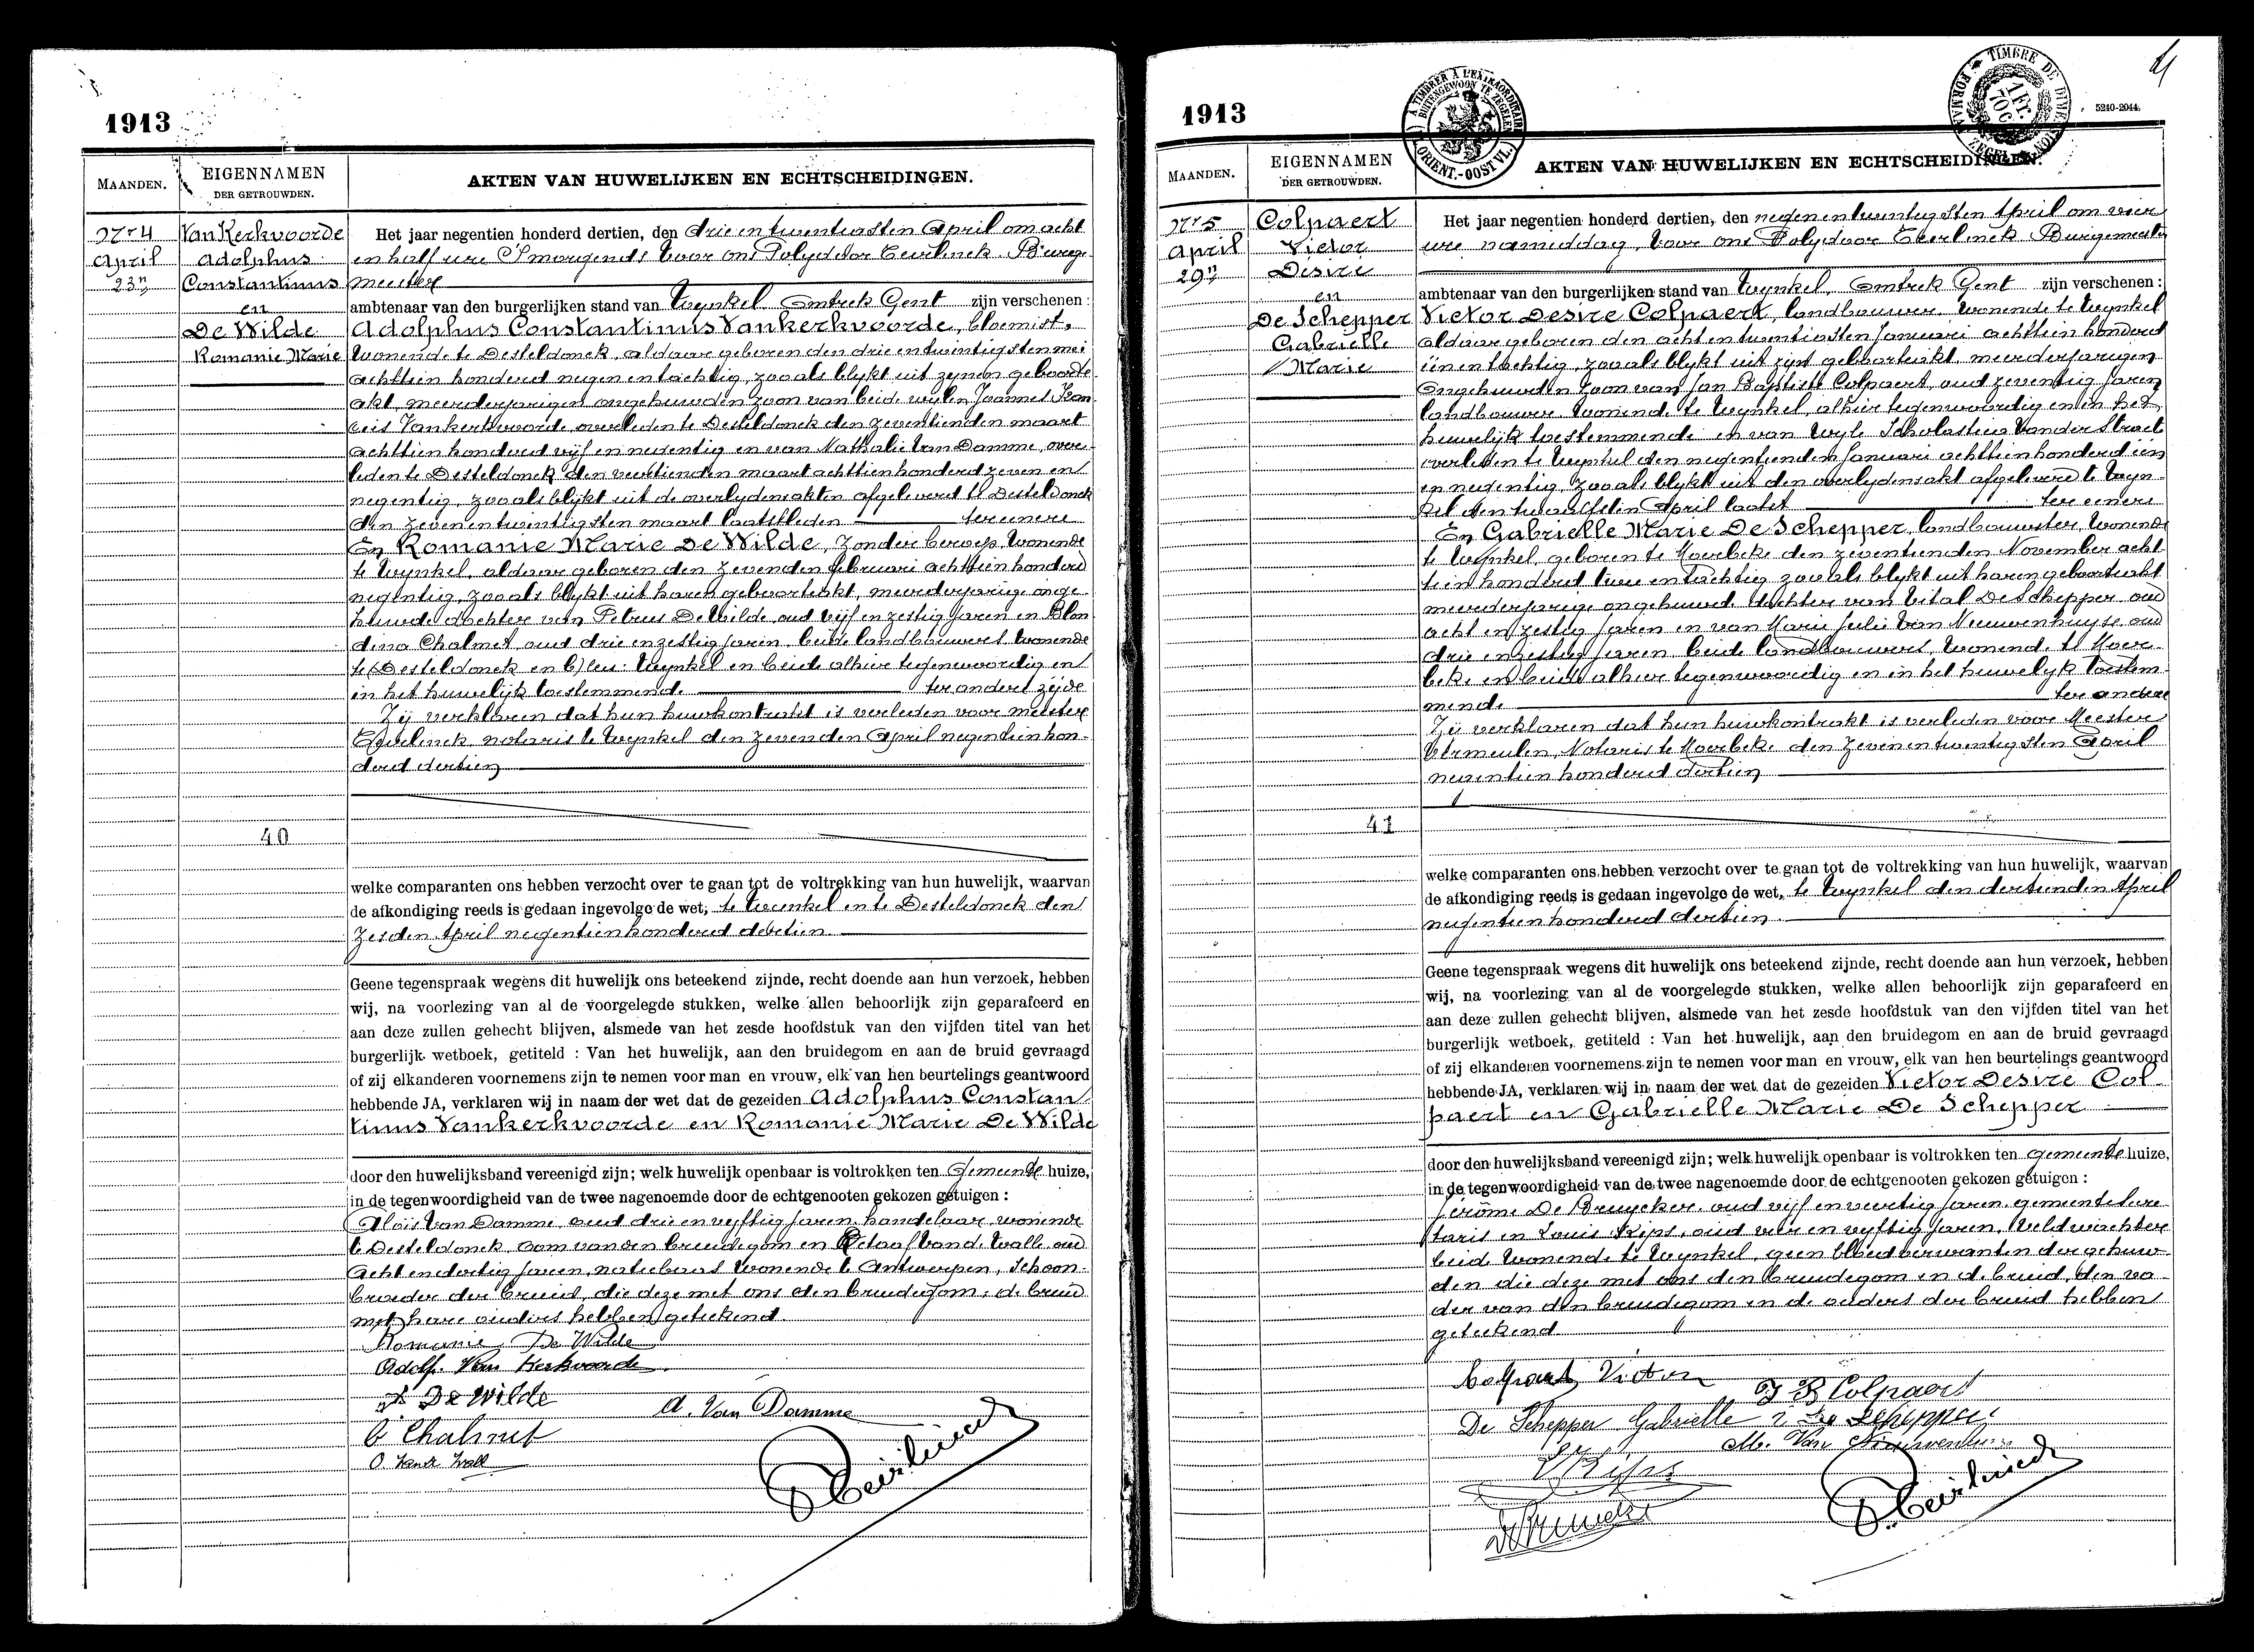 1913
MAANDEN.
EIGENNAMEN
DER GETROUWDEN.
AKTEN VAN HUWELIJKEN EN ECHTSCHEIDINGEN.
Nr 4
April
23n
Van Kerkvoorde
Adolphus
Constantinus
en
De Wilde
Romanie Marie
40
Het jaar negentien honderd dertien, den drie en twintigsten April om acht
en half ure 's morgends voor ons Polydoor Ceirlinck Burge
meester
ambtenaar van den burgerlijken stand van Wynkel Omtrek Gent zijn verschenen :
Adolphus Constantinus Vankerkvoorde, bloemist,
wonende te Desteldonck, aldaar geboren den drie en twintigsten mei
achttien honderd negen en tachtig, zooals blykt uit zynen geboorte
akt, meerderjarigen ongehuwden zoon van beide wylen Joannes Fran
cies Vankerkvoorde overleden te Desteldonck den zeventienden maart
achttien honderd vijf en negentig en van Nathalie Van Damme, over
leden te Desteldonck den veertienden maart achttien honderd zeven en
negentig, zooals blijkt uit de overlydensakten afgeleverd te Desteldonck
den zeven en twintigsten maart laatstleden ter eenere
En Romanie Marie De Wilde, zonder beroep, wonende
te Wynkel, aldaar geboren den zevenden februari achttien honderd
negentig, zooals blykt uit haren geboorteakt, meerderjarige onge
huwde dochter van Petrus De Wilde oud vijf en zestig jaren en Blon
dina Chalmet, oud drie en zestig jaren, beide landbouwers wonende
te Desteldonck en Wynkel en beide alhier tegenwoordig en
in het huwelijk toestemmende ter andere zyde
Zij verklaren dat hun huwkontrakt is verleden voor meester
Ceirlinck notaris te Wynkel den zevenden April negentien hon
derd dertien
welke comparanten ons hebben verzocht over te gaan tot de voltrekking van hun huwelijk, waarvan
de afkondiging reeds is gedaan ingevolge de wet, te Wynkel en te Desteldonck den
zesden April negentien honderd dertien
Geene tegenspraak wegens dit huwelijk ons beteekend zijnde, recht doende aan hun verzoek, hebben
wij, na voorlezing van al de voorgelegde stukken, welke allen behoorlijk zijn geparafeerd en
aan deze zullen gehecht blijven, alsmede van het zesde hoofdstuk van den vijfden titel van het
burgerlijk wetboek, getiteld : Van het huwelijk, aan den bruidegom en aan de bruid gevraagd
of zij elkanderen voornemens zijn te nemen voor man en vrouw, elk van hen beurtelings geantwoord
hebbende JA, verklaren wij in naam der wet dat de gezeiden Adolphus Constan
tinus Vankerkvoorde en Romanie Marie De Wilde
door den huwelijksband vereenigd zijn; welk huwelijk openbaar is voltrokken ten Gemeente huize,
in de tegenwoordigheid van de twee nagenoemde door de echtgenooten gekozen getuigen :
Alois Van Damme oud drie en vyftig jaren, handelaar wonende
te Desteldonck oom van den bruidegom en Octaaf Vand Walle oud
acht en dertig jaren, natiebaas wonende te Antwerpen, Schoon
broeder der bruid, die deze met ons den bruidegom, de bruid
met hare ouders hebben geteekend
Romanie De Wilde
Adolf. Van Kerkvoorde
P. De Wilde
A. Van Damme
B Chalmet
O. Vande Walle
P. Ceirlinck
1913
A TIMBRER A L'EXTRAORDINAIRE
BUITENGEWOON TE ZEGELEN
ORIENT.-OOST VL.
TIMBRE DE DIMENSION
FORMAAT ZEGEL
1 Fr. 70 C
5240-2044.
MAANDEN.
EIGENNAMEN
DER GETROUWDEN.
AKTEN VAN HUWELIJKEN EN ECHTSCHEIDINGEN.
Nr 5
April
29n
Colpaert
Victor
Desire
en
De Schepper
Gabrielle
Marie
41
Het jaar negentien honderd dertien, den negen en twintigsten April om vier
ure namiddag, voor ons Polydoor Ceirlinck Burgemeester
ambtenaar van den burgerlijken stand van Wynkel, Omtrek Gent zijn verschenen :
Victor Desire Colpaert, landbouwer, wonende te Wynkel
aldaar geboren den acht en twintigsten Januari achttien honderd
één en tachtig, zooals blykt uit zyne geboorteakt, meerderjarigen
ongehuwden zoon van Jan Baptiste Colpaert, oud zeventig jaren
landbouwer wonende te Wynkel, alhier tegenwoordig en in het
huwelijk toestemmende en van wyle Scholastica Vander Straet
overleden te Wynkel den negentienden Januari achttien honderd één
en negentig, zooals blykt uit den overlydensakt afgeleverd te Wyn
kel den twaalfsten April laatst ter eenere
En Gabrielle Marie De Schepper, landbouwster, wonende
te Wynkel, geboren te Moerbeke den zeventienden November acht
tien honderd twee en tachtig zooals blykt uit haren geboorteakt
meerderjarige ongehuwde dochter van Vital De Schepper oud
acht en zestig jaren en van Marie Julie Van Nieuwenhuyse oud
drie en zestig jaren beide landbouwers, wonende te Moer
beke en beide alhier tegenwoordig en in het huwelyk toestem
mende ter andere
Zij verklaren dat hun huwkontrakt is verleden voor Meester
Vermeulen, Notaris te Moerbeke den zeven en twintigsten April
negentien honderd dertien
welke comparanten ons hebben verzocht over te gaan tot de voltrekking van hun huwelijk, waarvan
de afkondiging reeds is gedaan ingevolge de wet, te Wynkel den dertienden April
negentien honderd dertien.
Geene tegenspraak wegens dit huwelijk ons beteekend zijnde, recht doende aan hun verzoek, hebben
wij, na voorlezing van al de voorgelegde stukken, welke allen behoorlijk zijn geparafeerd en
aan deze zullen gehecht blijven, alsmede van het zesde hoofdstuk van den vijfden titel van het
burgerlijk wetboek, getiteld : Van het huwelijk, aan den bruidegom en aan de bruid gevraagd
of zij elkanderen voornemens zijn te nemen voor man en vrouw, elk van hen beurtelings geantwoord
hebbende JA, verklaren wij in naam der wet dat de gezeiden Victor Desire Col
paert en Gabrielle Marie De Schepper
door den huwelijksband vereenigd zijn; welk huwelijk openbaar is voltrokken ten gemeente huize,
in de tegenwoordigheid van de twee nagenoemde door de echtgenooten gekozen getuigen :
Jérôme De Bruycker, oud vijf en veertig jaren, gemeentesecre
taris en Louis Ryps, oud vier en vyftig jaren, Veldwachter
beide wonende te Wynkel, geen bloedverwanten der gehuw
den die deze met ons den bruidegom en de bruid, den va
der van den bruidegom en de ouders der bruid hebben
geteekend
Colpaert Victor
J B Colpaert
De Schepper Gabrielle
De Schepper
M. Van Nieuwenhuyse
L Ryps
P. Ceirlinck